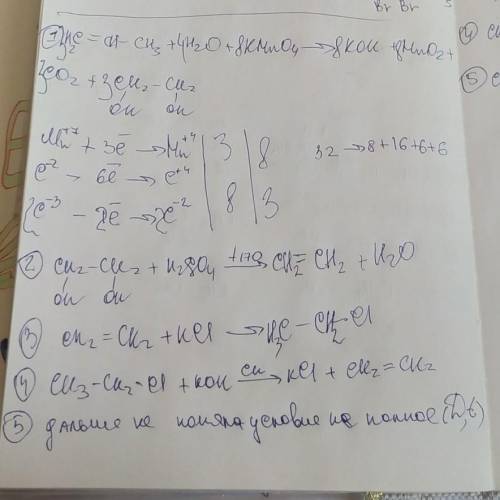 Br Br 5
① H₂C = CH - CH₃ + 4H₂O + 8KMnO₄ → 8KOH + 8MnO₂ +
3CO₂ + 3CH₂ - CH₂
OH OH
Mn⁺⁷ + 3ē → Mn⁺⁴ | 3 | 8
C⁻² - 6ē → C⁺⁴ 32 → 8+16+6+6
C⁻³ - 2ē → C⁻² | 8 | 3
② CH₂-CH₂ + H₂SO₄ → CH₂ = CH₂ + H₂O
OH OH
③ CH₂ = CH₂ + HCl → H₃C - CH₂-Cl
④ CH₃-CH₂-Cl + KOH → KCl + CH₂ = CH₂
⑤ дальше не поняла условие не полное (D,t)